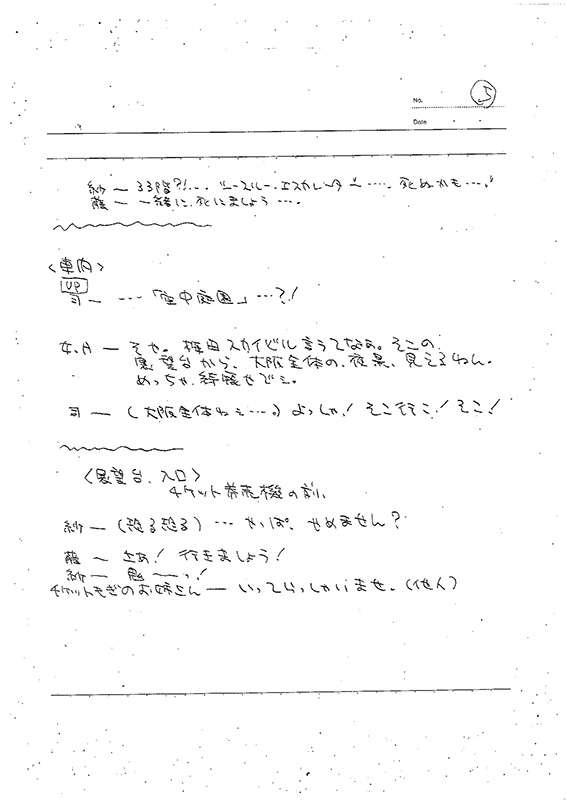 No. 5
Date
紗 ー 33階?!... シースルー.エスカレーター .... 死ぬかも....。
薩 ー 一緒に.死にましょう....
〈車内〉
UP
司 ー ...「空中庭園」...?!
女.A ー そや。梅田スカイビル言うてなぁ。そこの.
展望台から、大阪全体の.夜景.見えるねん。
めっちゃ.綺麗やでぇ。
司 ー (大阪全体ねぇ....。) よっしゃ! そこ行こ! そこ!
〈展望台.入口〉
チケット券売機の前.
紗 ー (恐る恐る) ... やっぱ、やめません?
薩 ー さあ! 行きましょう!
紗 ー ーーっ!
チケットもぎのお姉さん ー いってらっしゃいませ。(他人)